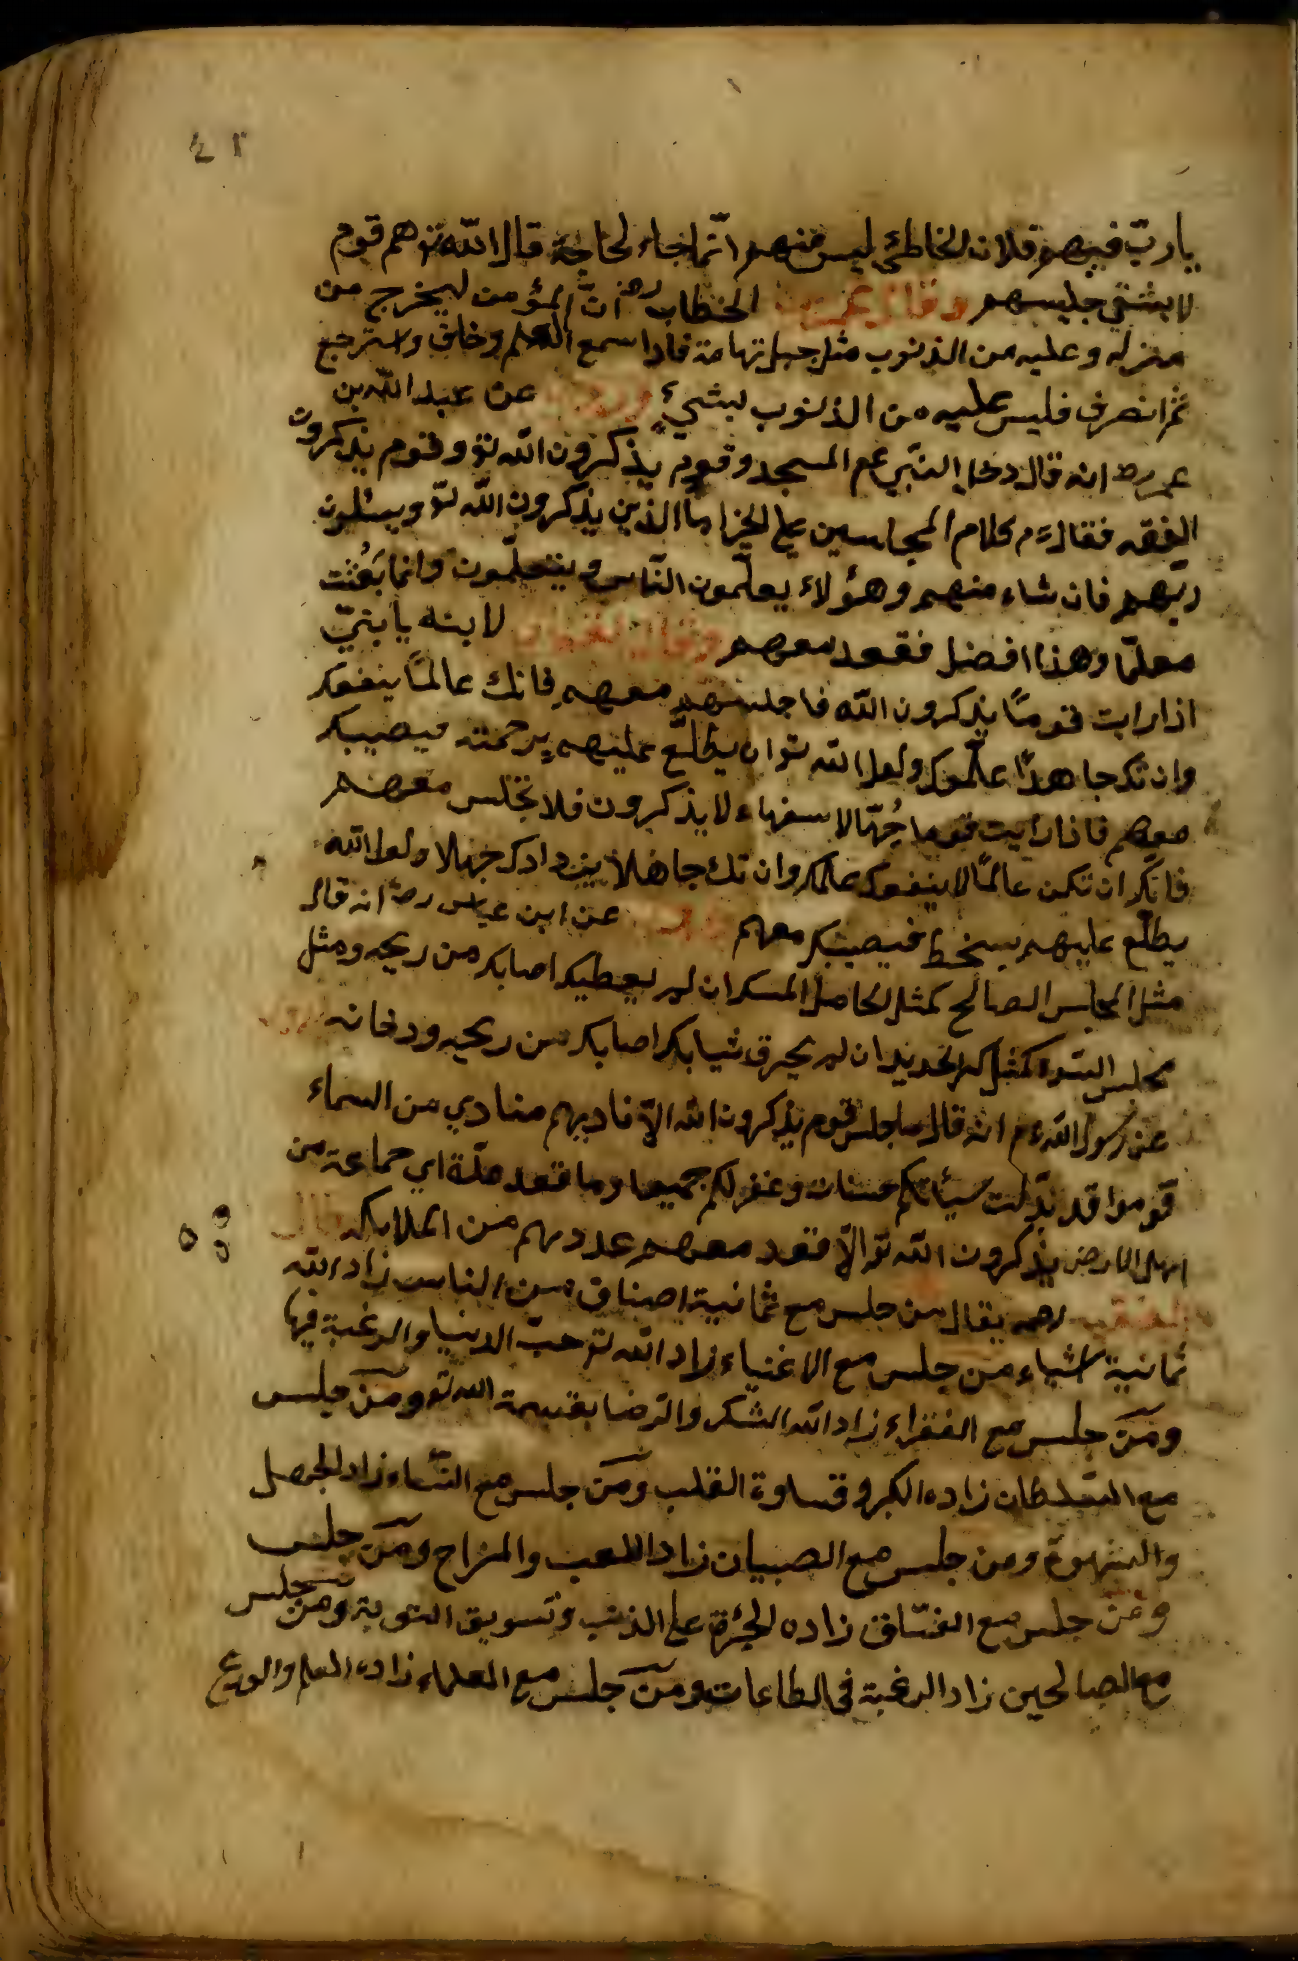 ٤٢
يا ربّ فيهم فلان الخاطئ ليس منهم انّما جاء لحاجة قال الله تو هم قوم
لا يشقي جليسهم وقال عمر بن الخطاب رضه انّ المؤمن ليخرج من
منزله وعليه من الذنوب مثل جبل تهامة فاذا سمع العلم وخاف واسترجع
ثم انصرف فليس عليه من الذنوب بشيءٍ وروي عن عبد الله بن
عمر رضـ انه قال دخل النبي عم المسجد وقوم يذكرون الله تو وقوم يذكرون
الفقه فقال ءم كلام المجلسين علي الخير اما الذين يذكرون الله تو ويسئلون
ربّهم فان شاء منهم وهؤلاء يعلّمون النّاس ويتعلّمون وانما بَعُثت
معلّما وهذا افضل فقعد معهم وقال لقمان لابنه يا بنيّ
اذا رايت قومًا يذكرون الله فاجلس معهم فانك عالمًا ينفعك
وان تك جاهلًا علّموك ولعل الله تو ان يطلّع عليهم برحمته فيصيبك
معهم فاذا رايت قوما جُهّالا سفهاء لا يذكرون فلا تجلس معهم
فانك ان تكن عالمًا لا ينفعك علمك وان تك جاهلا يزدادك جهلا ولعل الله
يطلّع عليهم بسخط فيصيبك معهم عن ابن عباس رضـ انه قال
مثل المجلس الصالح كمثل الحامل المسك ان لم يعطيك اصابك من ريحه ومثل
مجلس السّوء كمثل الحديد ان لم يحرق ثيابك اصابك من ريحه ودخانه روي
عن رسول الله ءم انه قال ما جلس قوم يذكرون الله الّا ناديهم منادي من السماء
قوموا قد بدّلت سيئاتكم حسنات وغفر لكم جميعا وما قعد ملّة اي جماعة من
اهل الارض يذكرون الله تو الّا قعد معهم عددهم من الملايكه قال
الفقيه رحمه يقال من جلس مع ثمانية اصناف من الناس زاد الله
ثمانية اشياء من جلس مع الاغنياء زاد الله تو حبّ الدنيا والرغبة فيها
ومَن جلس مع الفقراء زاد الله الشكر والرضا بقسمة الله تو ومَن جلس
مع السّلطان زاده الكبر وقساوة القلب ومَن جلس مع النّساء زاد الجهل
والشهوة ومن جلس مع الصبيان زاد اللعب والمزاح ومَن جلس
ومَن جلس مع الفسّاق زاده الجرُئة علي الذنب وتسويف التوبة ومن جلس
مع الصالحين زاد الرغبة في الطاعات ومَن جلس مع العلماء زاده العلم والورع